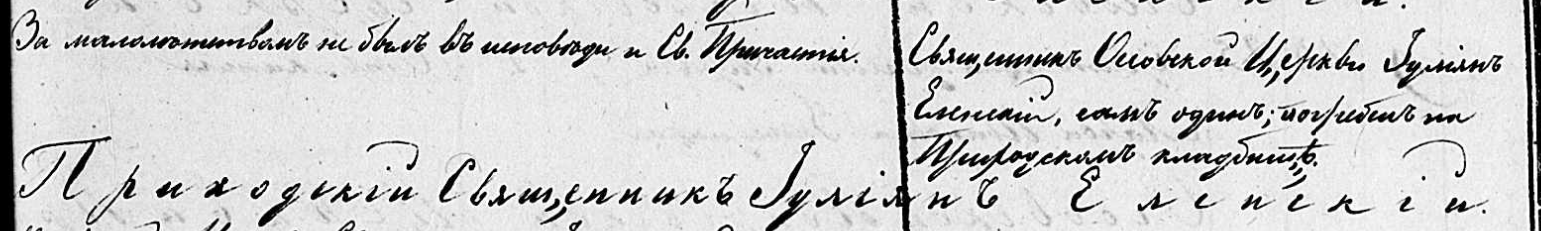 За малолѣтствомъ не былъ въ исповѣди и Св. Причастія.
Священникъ Осовской Церкви Іуліянъ
Еленскій, самъ одинъ; погребенъ на
Приходскомъ кладбищѣ.
Приходскій Священникъ Іуліянъ Еленскій.